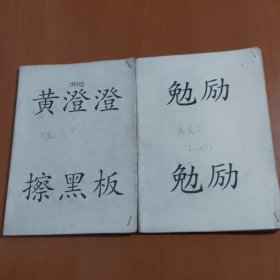 dèng
黄澄澄
擦黑板
勉励
勉励